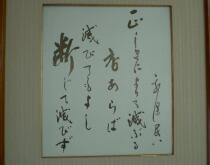 正しきによりて滅ぶる
店あらば
滅びてもよし
断じて滅びず